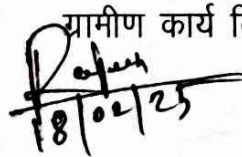 ग्रामीण कार्य
Rajesh
18/02/25